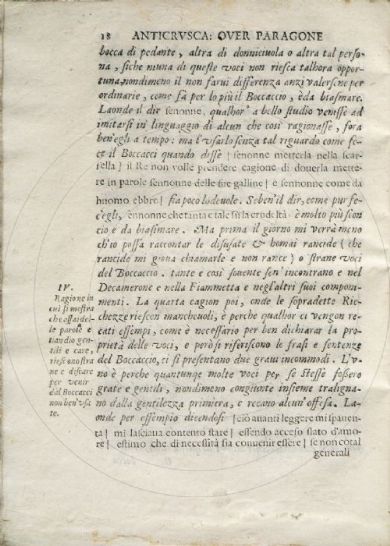 18 ANTICRVSCA: OVER PARAGONE
bocca di pedante, altra di donnicivola o altra tal perso-
na, siche niuna di queste voci non riesca talhora oppor-
tuna, nondimeno il non farui differenza anzi valersene per
ordinarie, come fà per lo più il Boccaccio, è da biasmare.
Laonde il dir senonne, qualhor' a bello studio venisse ad
imitarsi in linguaggio di alcun che così ragionasse, fora
ben'egli a tempo: ma l'vsarlo senza tal riguardo come fe-
ce il Boccacci quando disse | senonne metterla nella scar-
sella | il Re non volle prendere cagione di douerla mette-
re in parole sennonne delle sue galline | e sennonne come da
huomo ebbro | fia poco lodeuole. Seben'il dir, come pur fe-
c'egli, ennonne che tanta e tale si sia
cio e da biasimare. Ma prima il giorno mi verrà meno
ch'io possa raccontar le disusate & homai rancide (che
rancide mi giova chiamarle e non rance) o strane voci
del Boccaccio. tante e così souente sen' incontrano e nel
Decamerone e nella Fiammetta e negl'altri suoi componi-
menti. La quarta cagion poi, onde le sopradette Ric-
chezze riescon mancheuoli, è perche qualhor ci vengon re-
cati essempi, come è necessario per ben dichiarar la pro-
prietà delle voci, e però si riferiscono le frasi e sentenze
del Boccaccio, ci si presentano due graui incommodi. L'v-
no è perche quantunque molte voci per se stesse fossero
grate e gentili, nondimeno congiunte insieme traligna-
no dalla gentilezza primiera, e recano alcun'offesa. La-
onde per essempio dicendosi | ciò auanti leggere mi spauen-
ta | mi lasciaua contento stare | essendo acceso stato d'amo-
re | estimo che di necessità sia conuenir essere | se non cotal
generali
IV.
Ragione in
cui si mostra
che assai del-
le parole e
gentili e care,
per venir
dal Boccacci
non ben vsa-
te.